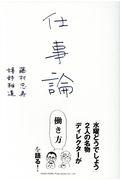 仕事論
藤村忠寿
嬉野雅道
水曜どうでしょう
2人の名物
ディレクターが
働き方
を語る!